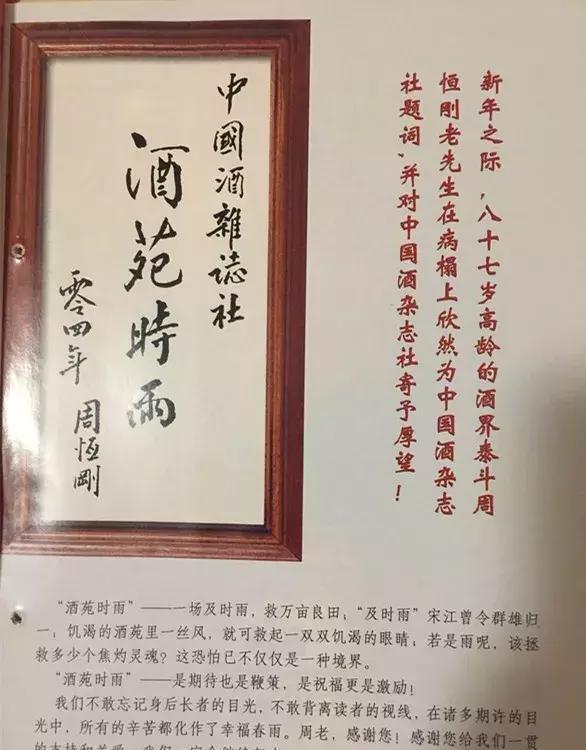 中國酒雜誌社
酒苑時雨
零四年 周恆剛
新年之际，八十七岁高龄的酒界泰斗周
恒刚老先生在病榻上欣然为中国酒杂志
社题词，并对中国酒杂志社寄予厚望！
“酒苑时雨”——一场及时雨，救万亩良田；“及时雨”宋江曾令群雄归
一；饥渴的酒苑里一丝风，就可救起一双双饥渴的眼睛；若是雨呢，该拯
救多少个焦灼灵魂？这恐怕已不仅仅是一种境界。
“酒苑时雨”——是期待也是鞭策，是祝福更是激励！
我们不敢忘记身后长者的目光，不敢背离读者的视线，在诸多期许的目
光中，所有的辛苦都化作了幸福春雨。周老，感谢您！感谢您给我们一贯